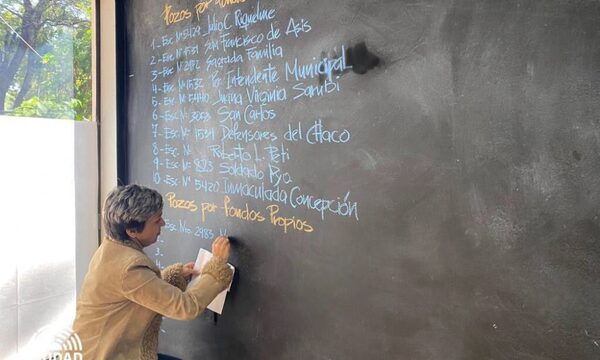 Pozos por Fondos
1 - Esc. Nº 5429 Julio C. Riquelme
2 - Esc Nº 4731 San Francisco de Asis
3 - Esc Nº 2472 Sagrada Familia
4 - Esc Nº 1532 Por Intendente Municipal
5 - Esc Nº 5440 Juana Virginia Sarubi
6 - Esc Nº 3053 San Carlos
7 - Esc Nº 1534 Defensores del CHaco
8 - Esc. Nº Roberto L. Peti
9 - Esc Nº 823 Soldado Pyo
10 - Esc Nº 5420 Inmaculada Concepción
Pozos por Fondos Propios
Esc Nº 2983 N
2-
3-
4-
CIUDAD